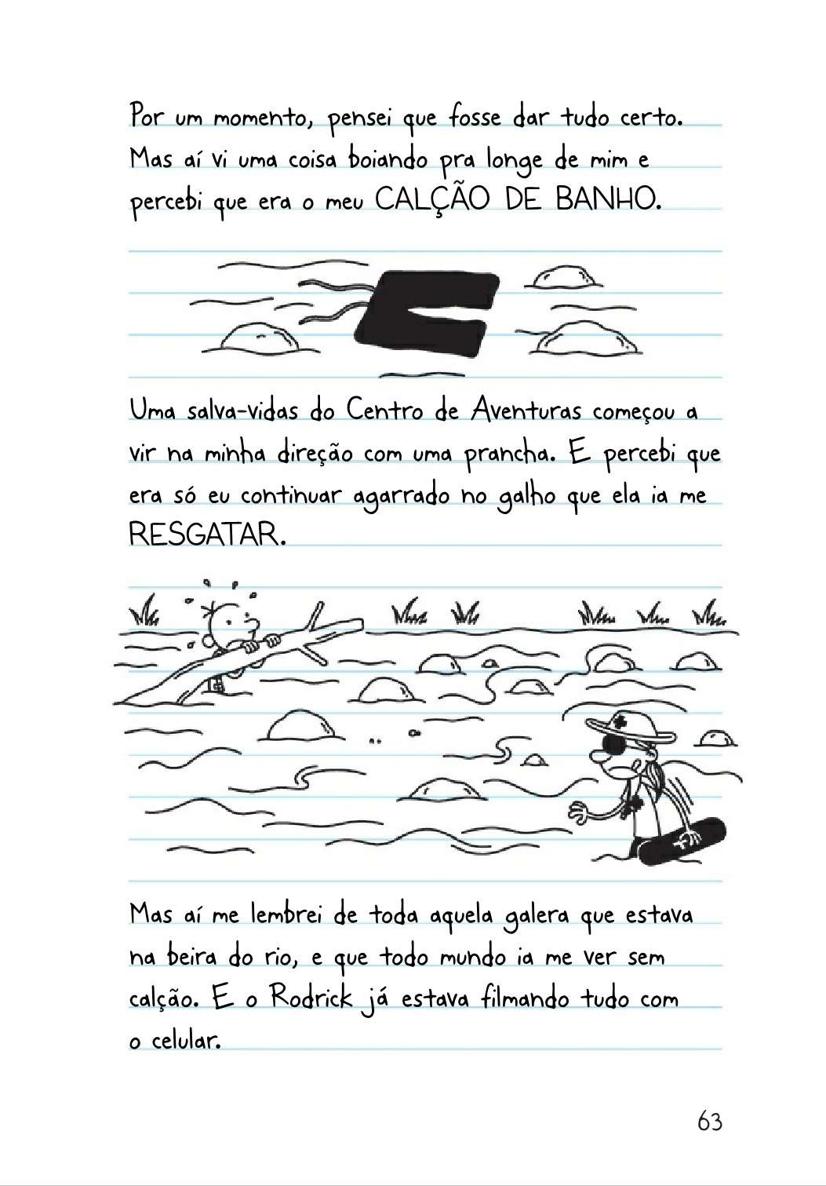 Por um momento, pensei que fosse dar tudo certo.
Mas aí vi uma coisa boiando pra longe de mim e
percebi que era o meu CALÇÃO DE BANHO.
Uma salva-vidas do Centro de Aventuras começou a
vir na minha direção com uma prancha. E percebi que
era só eu continuar agarrado no galho que ela ia me
RESGATAR.
Mas aí me lembrei de toda aquela galera que estava
na beira do rio, e que todo mundo ia me ver sem
calção. E o Rodrick já estava filmando tudo com
o celular.
63